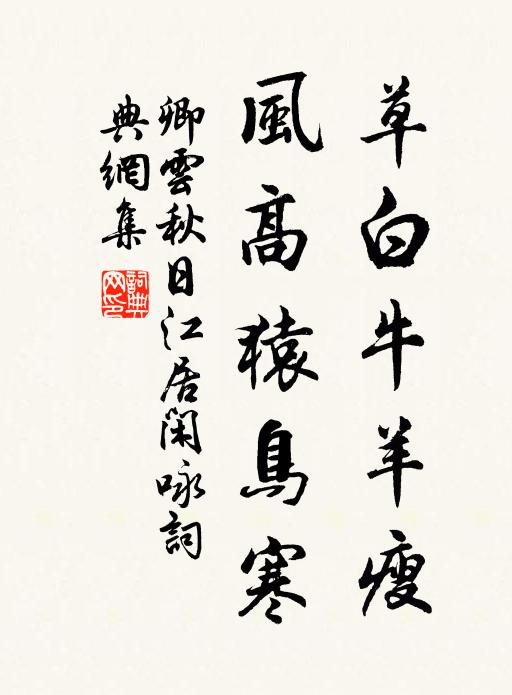 草白牛羊瘦
風高猿鳥寒
卿雲秋日江居閑咏詞
典網集
詞典
网印